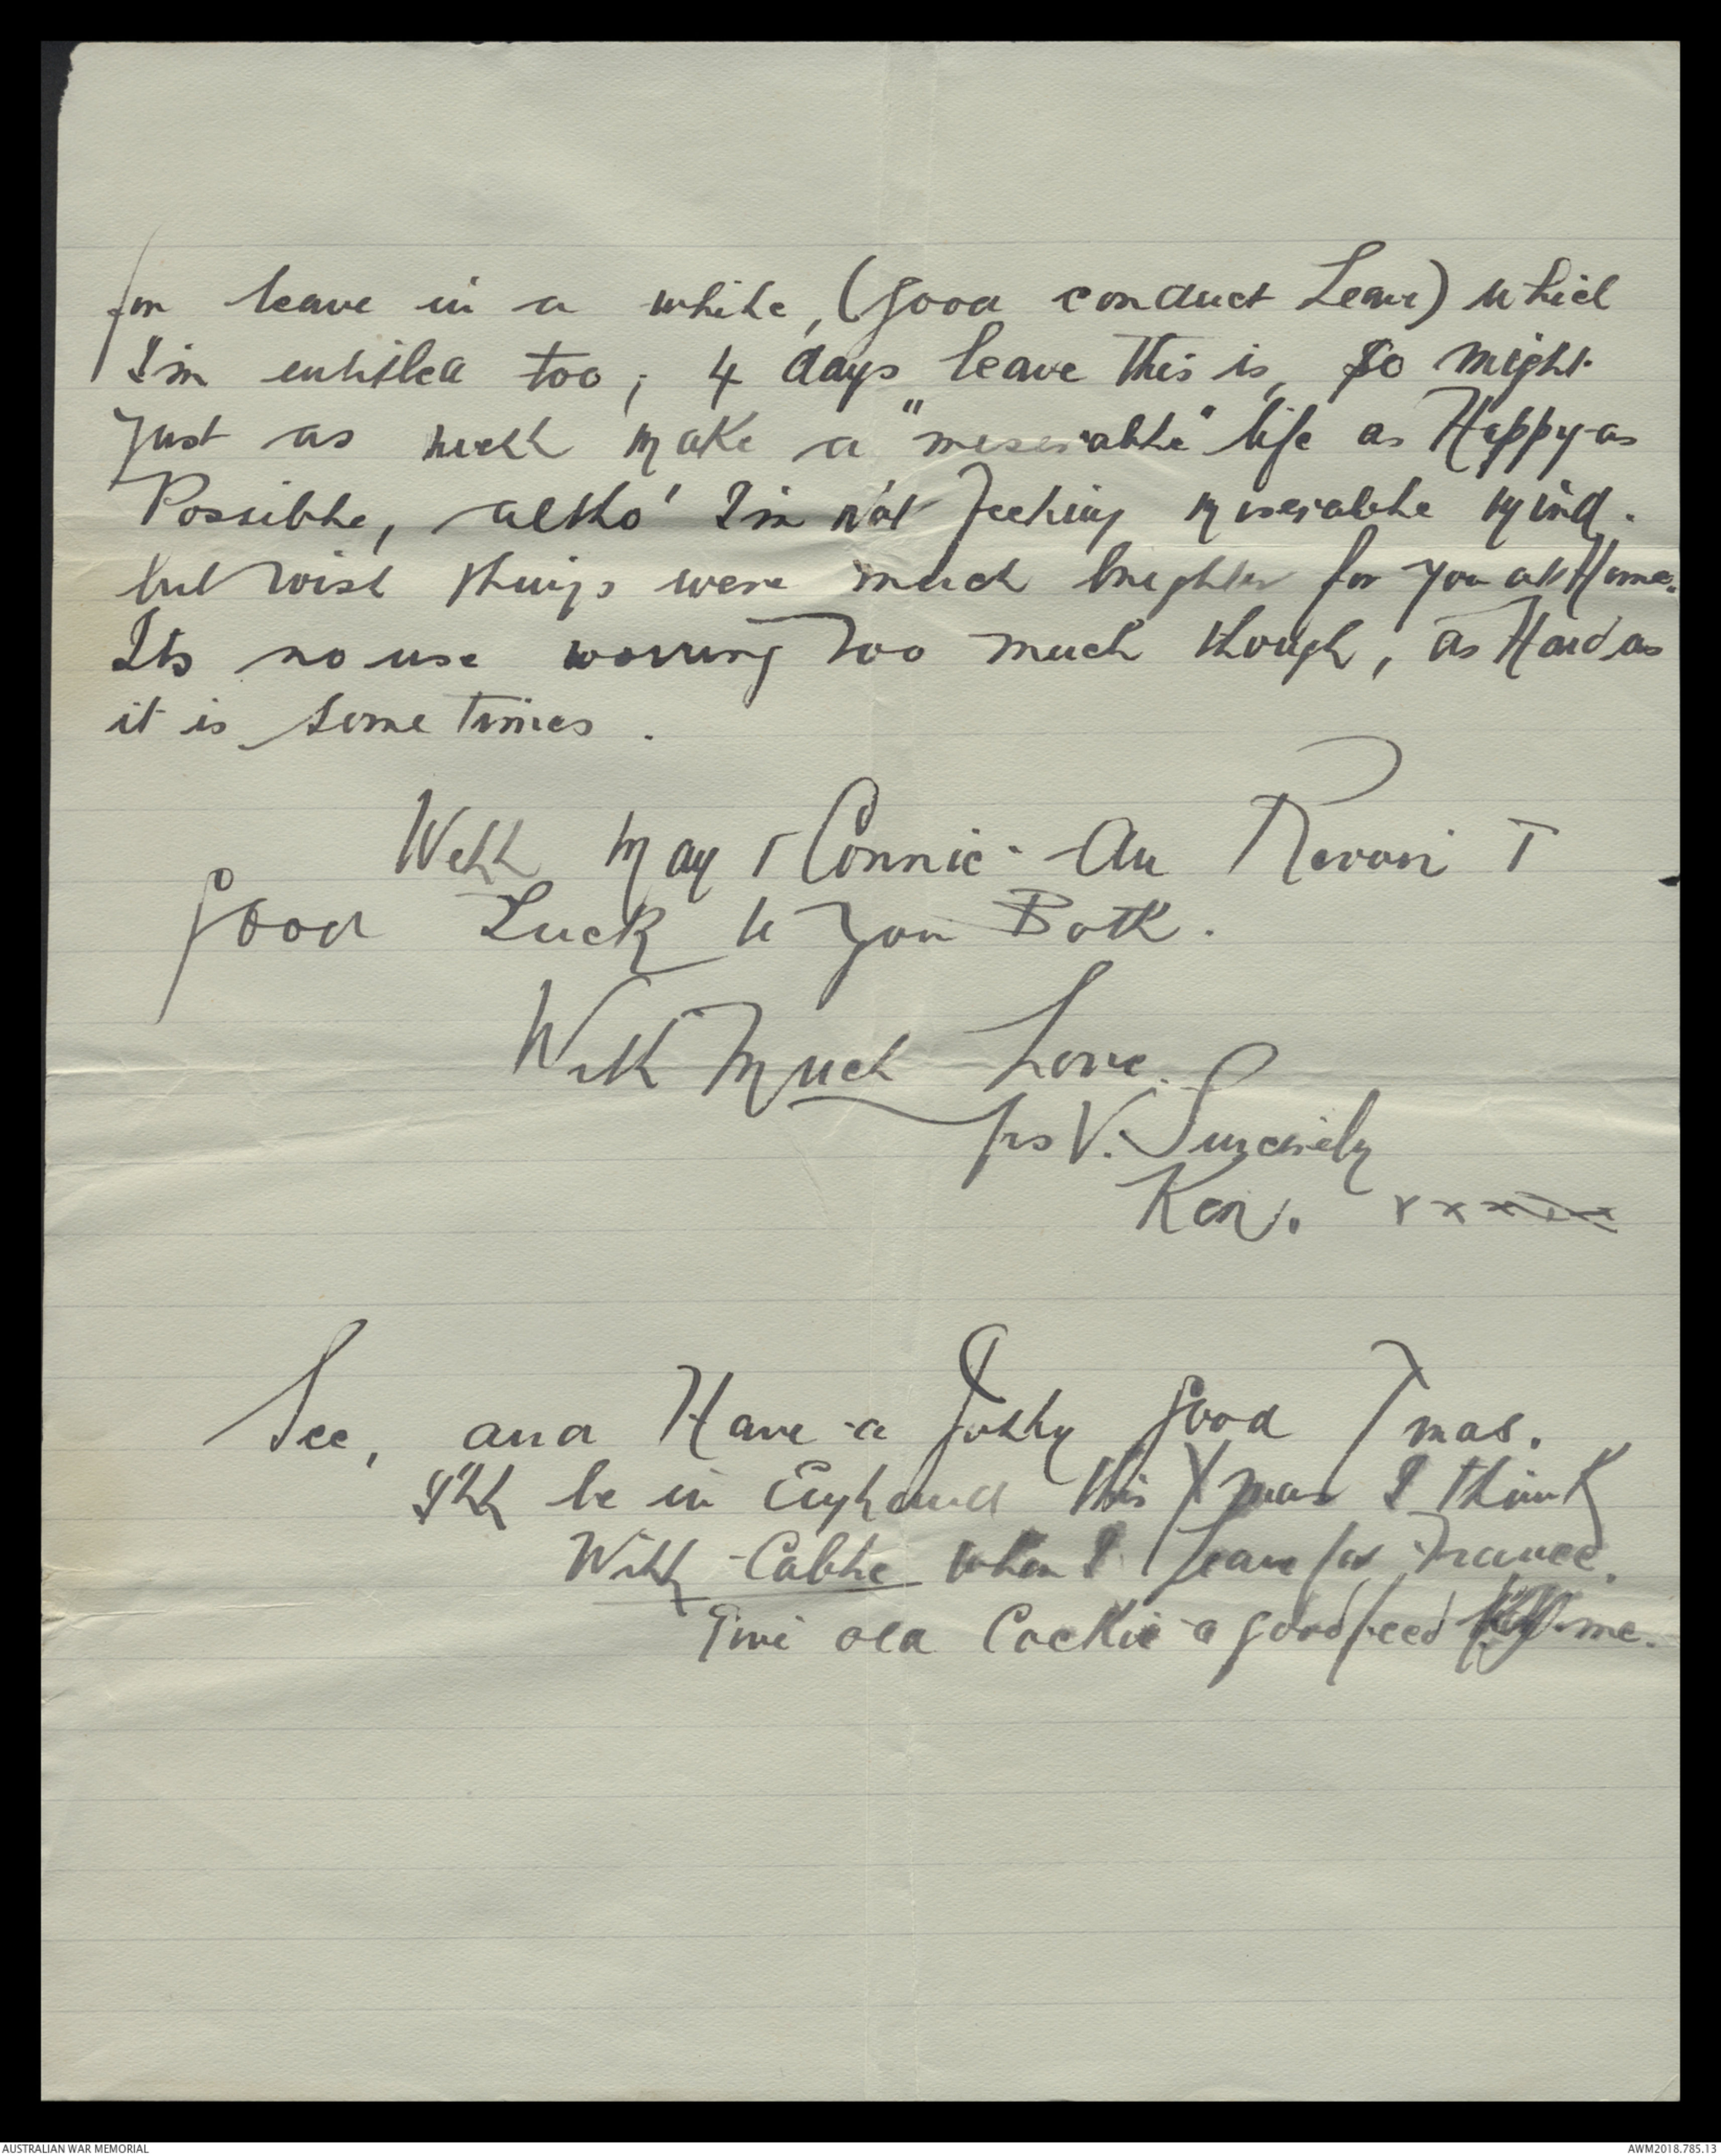 for leave in a while, (Good conduct Leave) which
I'm entitled too; 4 days leave this is, So might
Just as well make a "miserable" life as Happy as
Possible, altho' I'm not feeling miserable mind.
but wish things were much brighter for you at Home.
Its no use worring Too much though, as Hard as
it is some times.
Well May & Connie - Au Revoir &
Good Luck to You Both.
With Much Love.
Yrs V. Sincerely
Ken. xxxxx
See, and Have a Jolly Good Xmas.
I'll be in England this Xmas I think
Will Cable when I Leave for France.
Give old Cockie a good feed me.
AUSTRALIAN WAR MEMORIAL
AWM2018.785.13